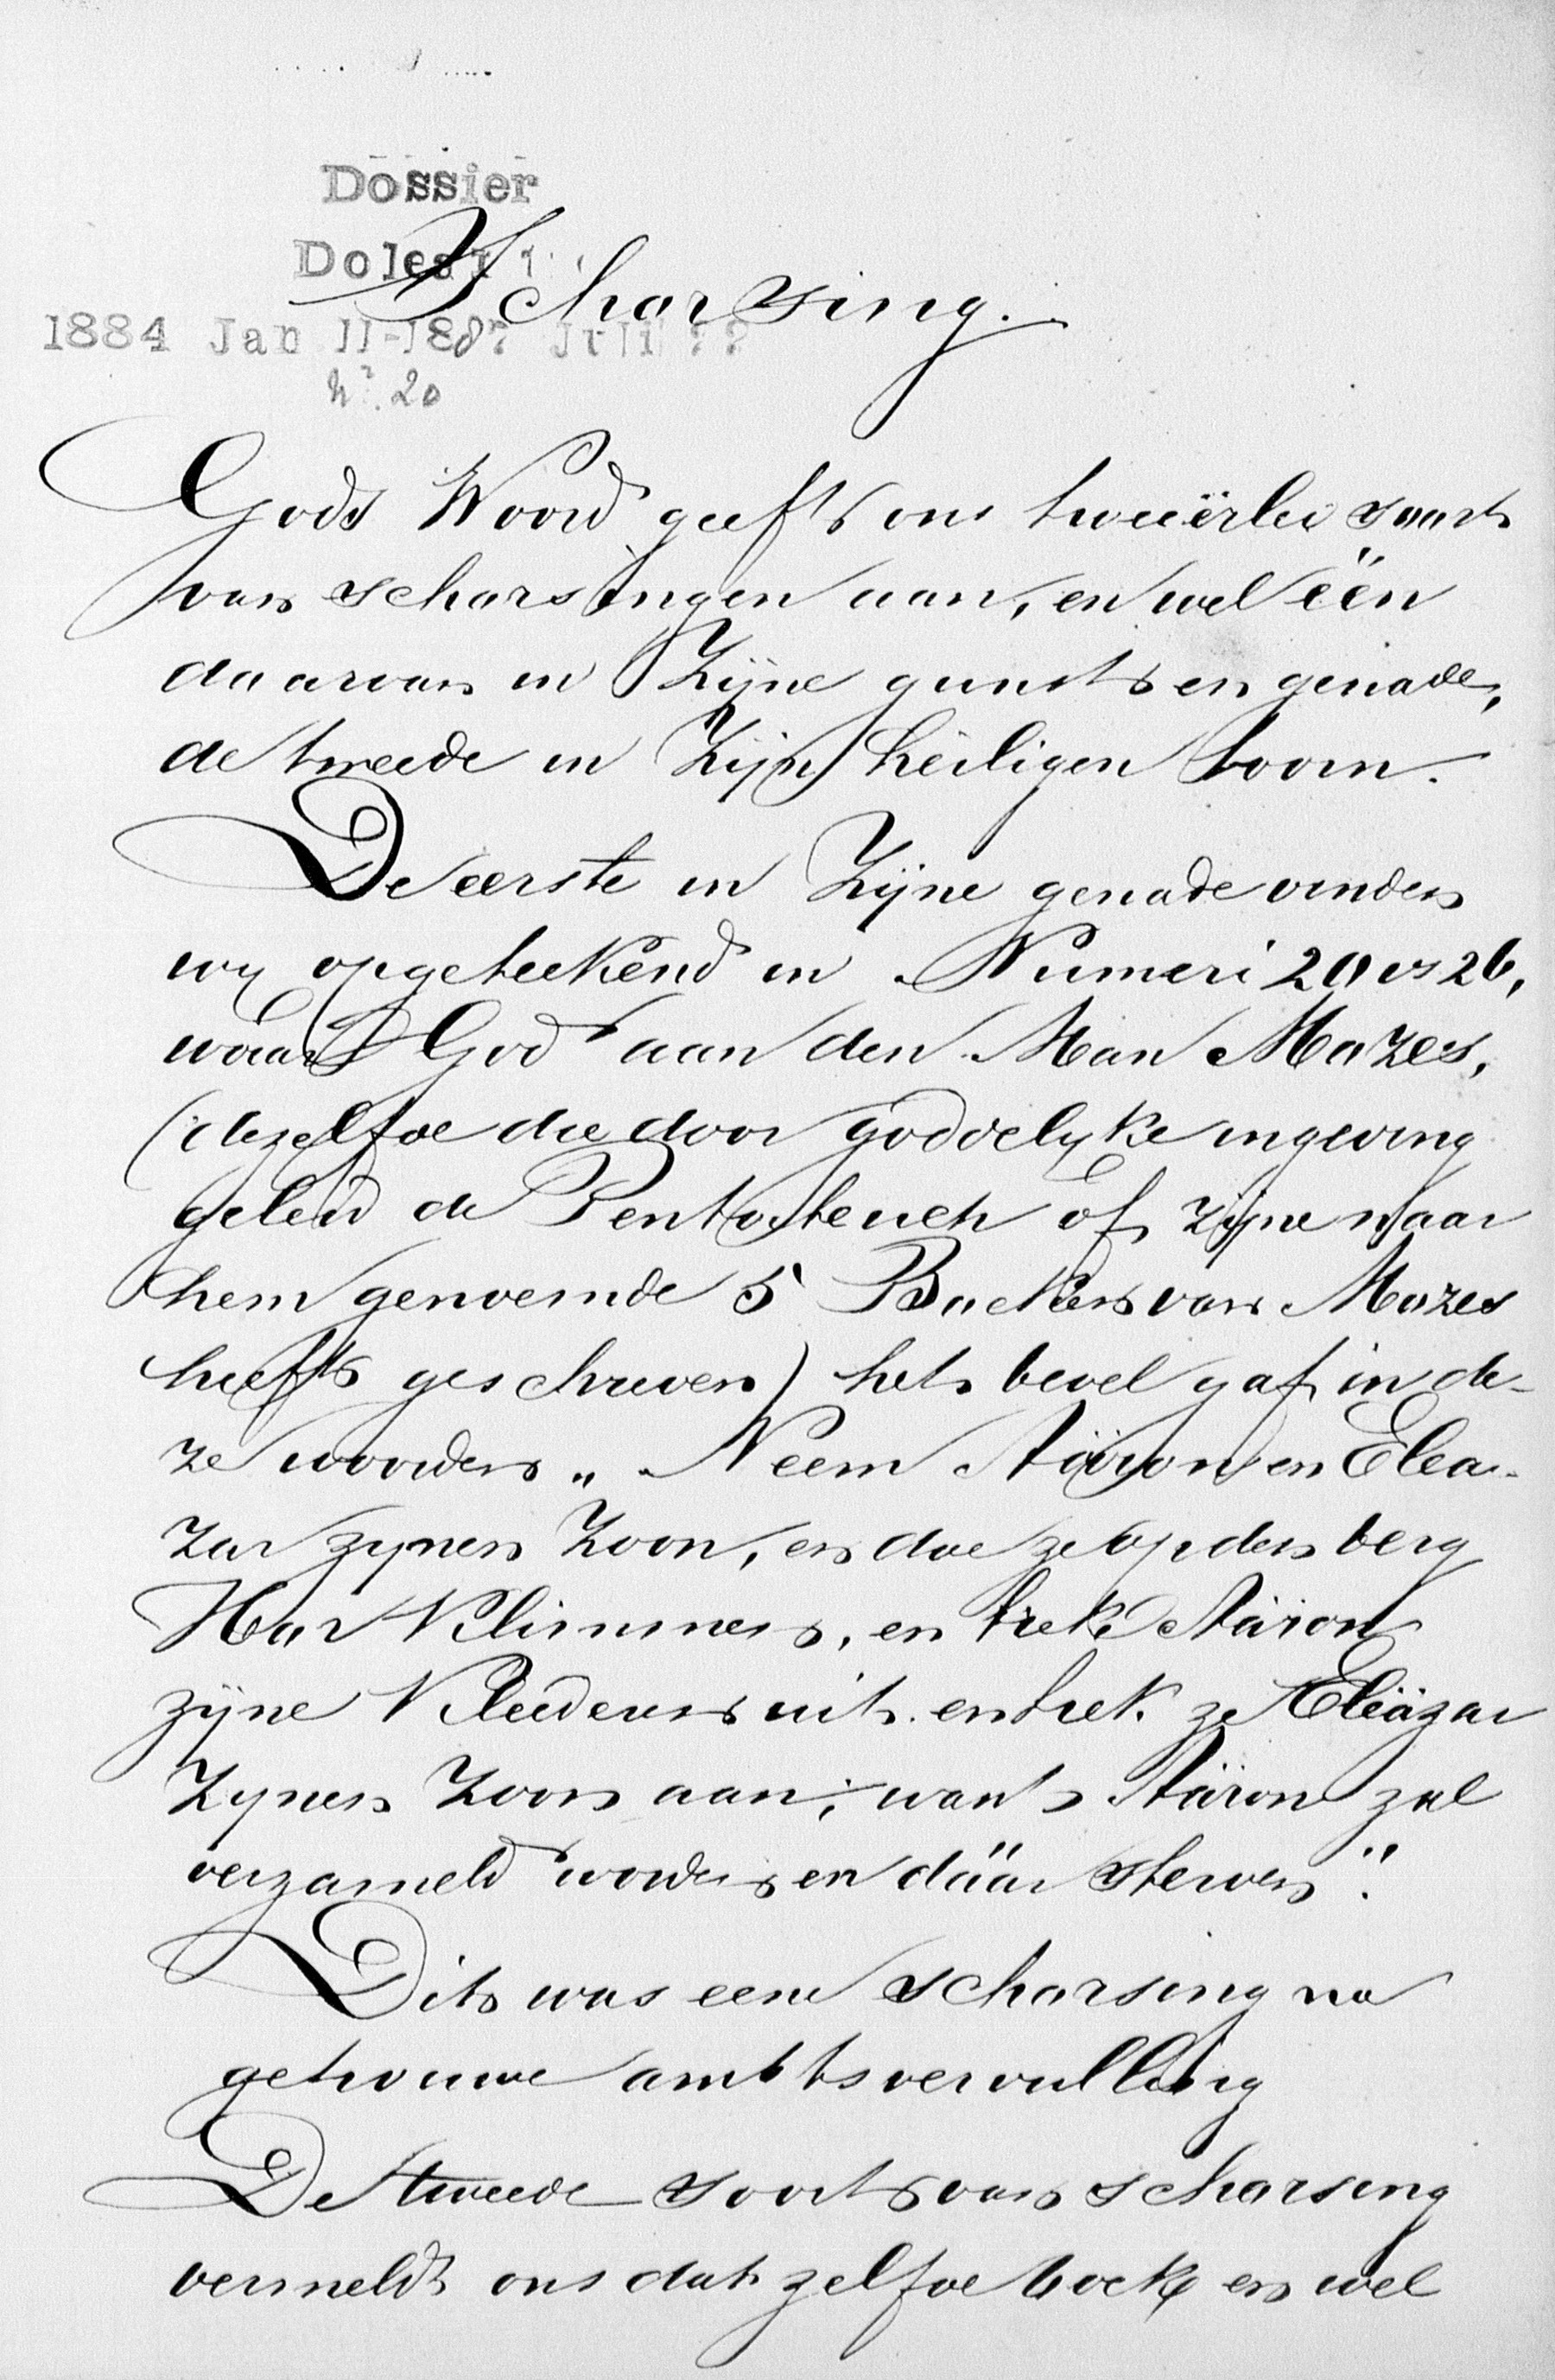 Dossier
Schorsing.
1884 Jan 11-188
No. 20
Gods Woord geeft ons tweeërlei soort
van schorsingen aan, en wel één
daarvan in Zijne gunst en genade,
de tweede in Zijn heiligen toorn.
De eerste in Zijne genade vinden
wy opgeteekend in Numeri 20 vs 26,
waar God aan den Man Mozes,
(dezelfde die door goddelyke ingeving
geleid de Pentateuch of zijne naar
hem genoemde 5 Boeken van Mozes
heeft geschreven) het bevel gaf in de-
ze woorden „ Neem Aäron en Elea-
zar zynen Zoon, en doe ze op den berg
Hor Klimmen, en trek Aäron
zijne Kleederen uit. en trek ze Eleäzar
Zynen Zoon aan; want Aäron zal
verzameld worden en däär sterven".
Dit was eene schorsing na
getrouwe ambtsvervulling
De tweede soort van schorsing
vermeldt ons dat zelfde boek en wel